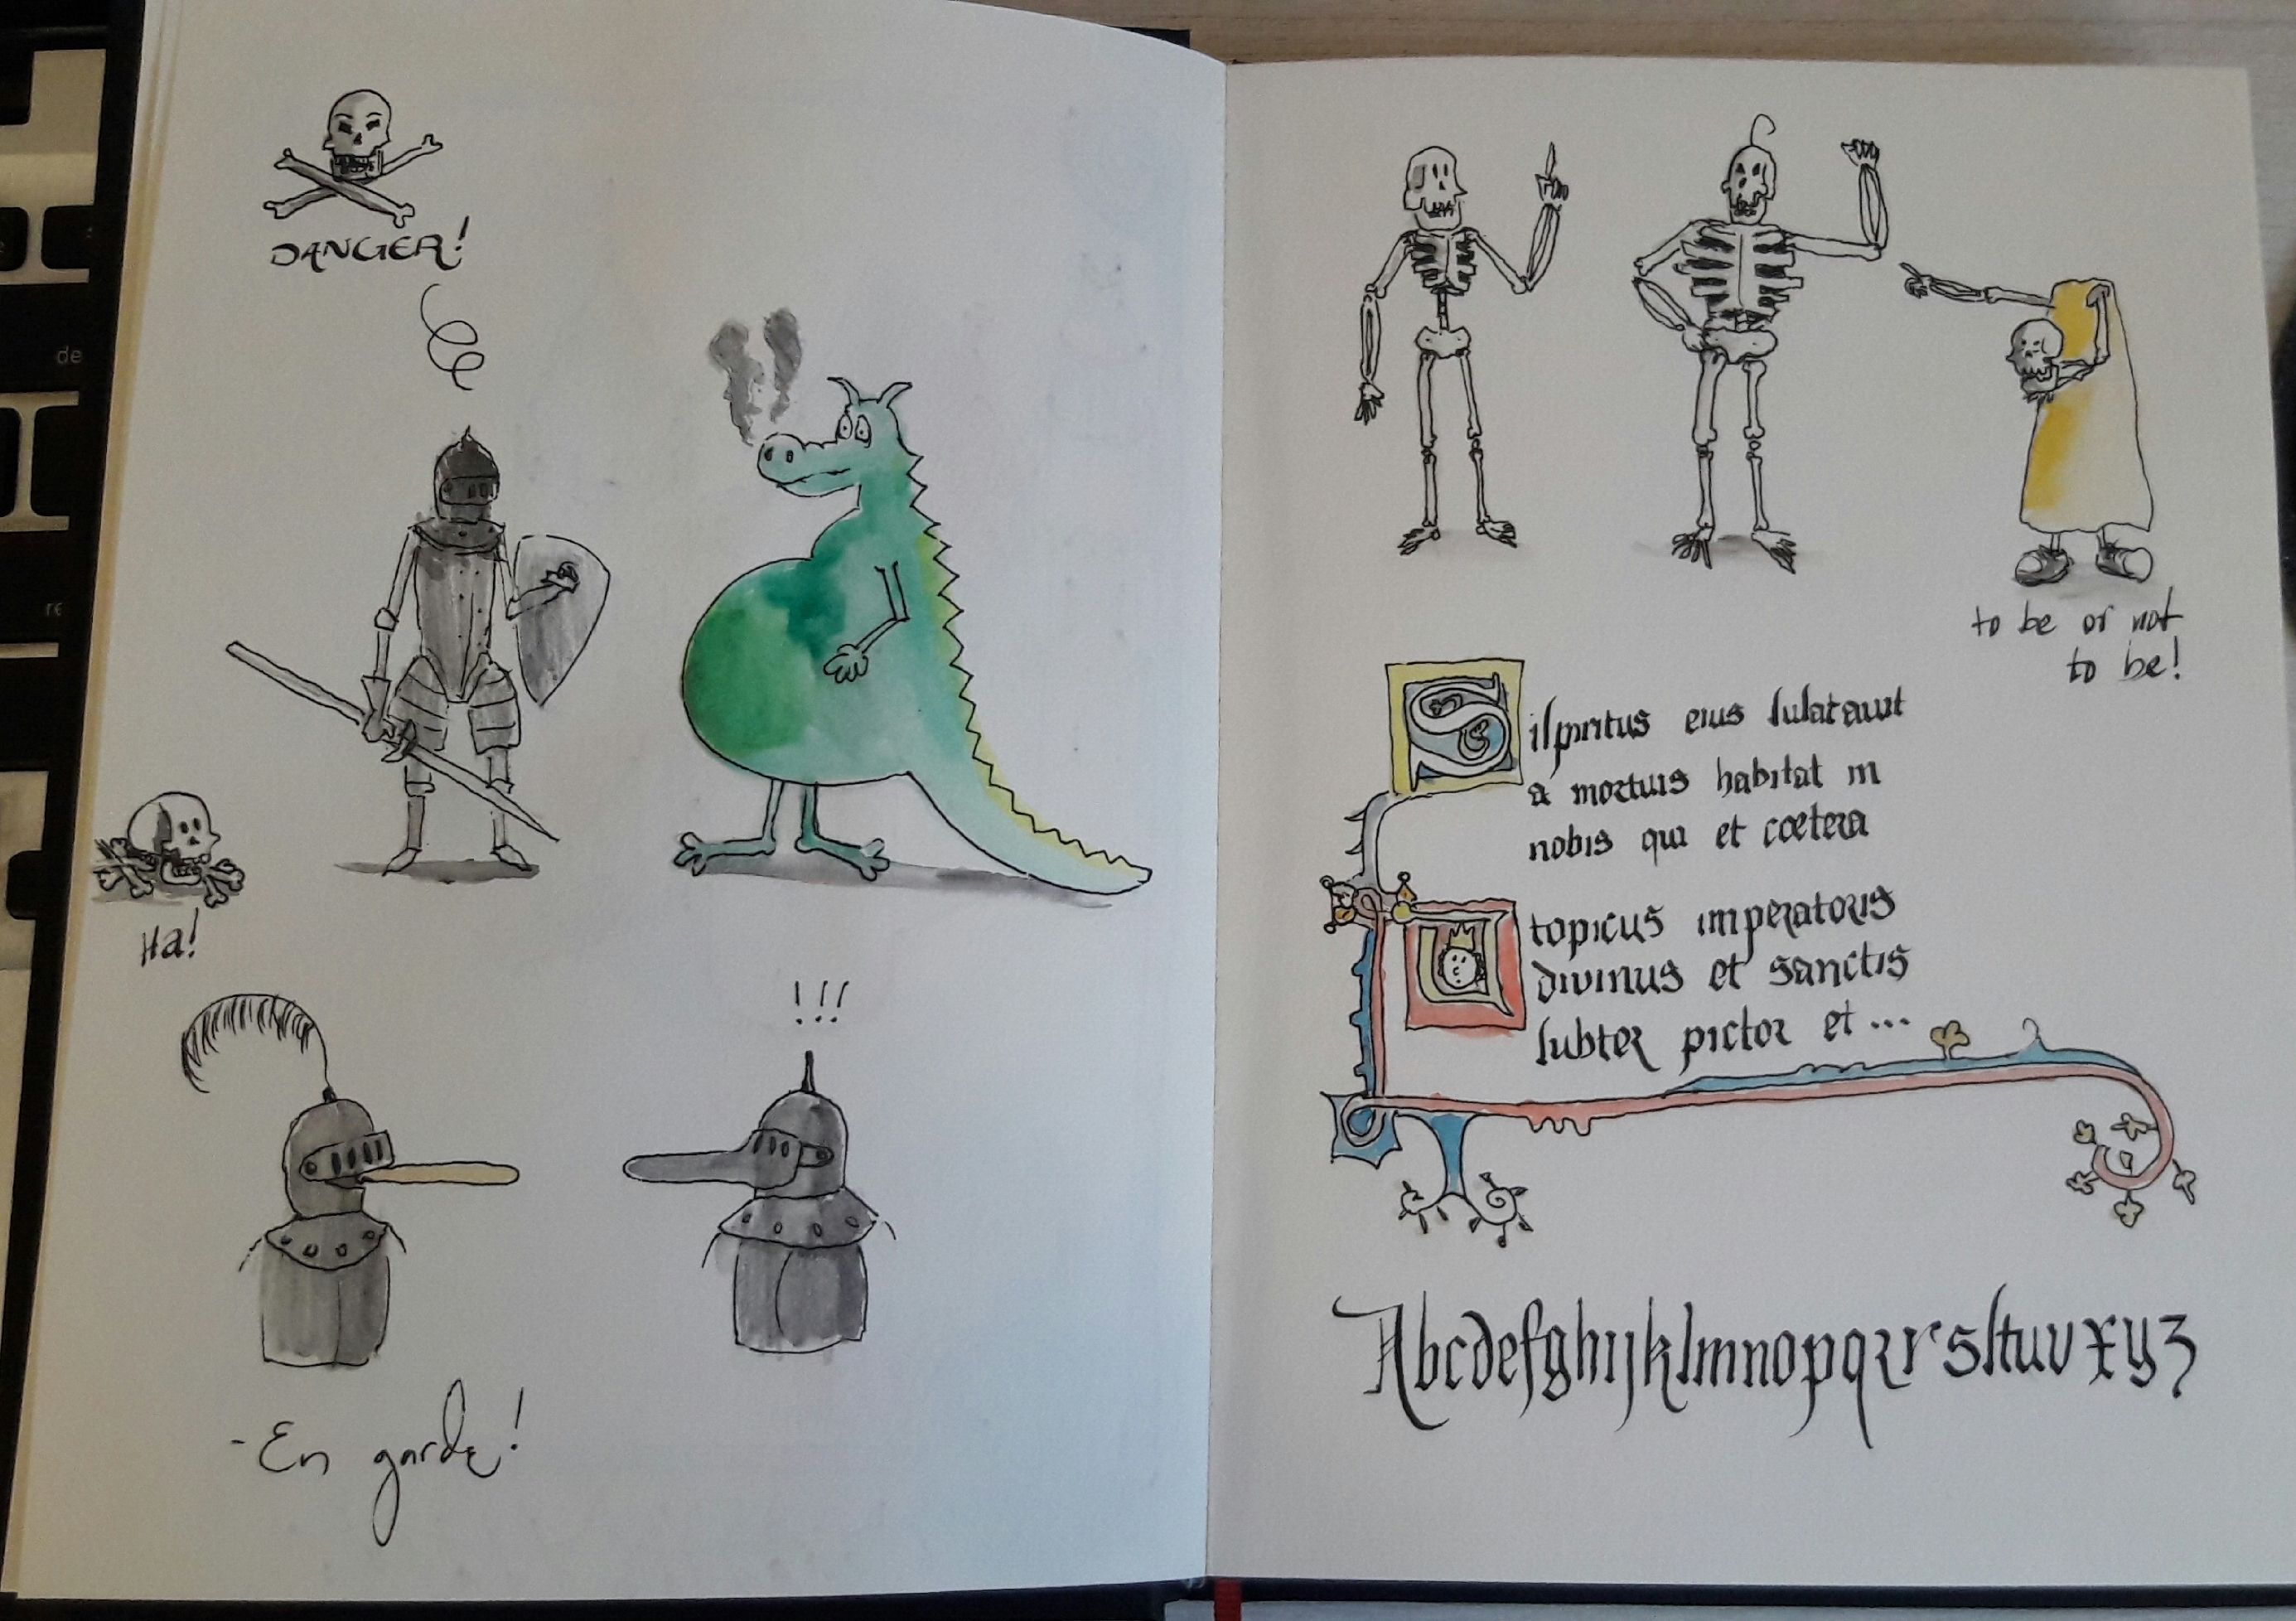 DANGER!
Ha!
!!!
- En garde!
to be or not
to be!
Sispiritus eius sulatauit
a mortuis habitat in
nobis qui et coetera
Utopicus imperatoris
divinus et sanctis
subter pictor et...
Abcdefghijklmnopqrrsstuvxyz